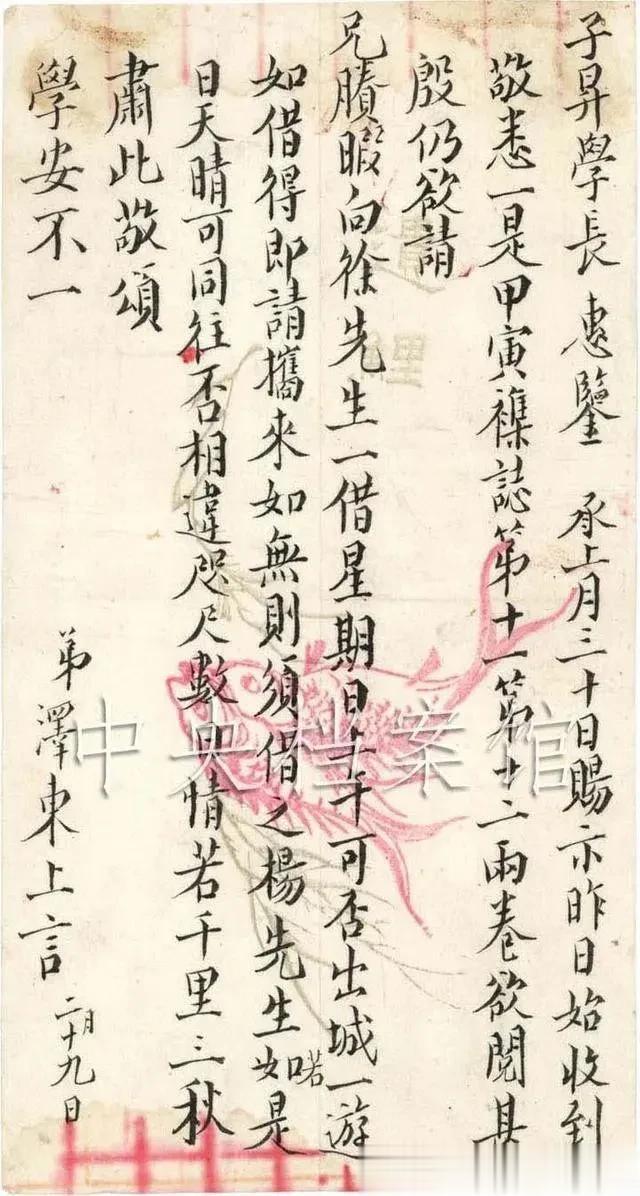 子昇學長 惠鑒 承上月三十日賜示昨日始收到
敬悉一是甲寅襍誌第十一第十二兩卷欲閱甚
殷仍欲請
兄賸暇向徐先生一借星期日上午可否出城一遊
如借得即請攜來如無則須借之楊先生如若是
日天晴可同往否相違咫尺數日情若千里三秋
肅此敬頌
學安不一
弟澤東上言 二月十九日
中央档案馆